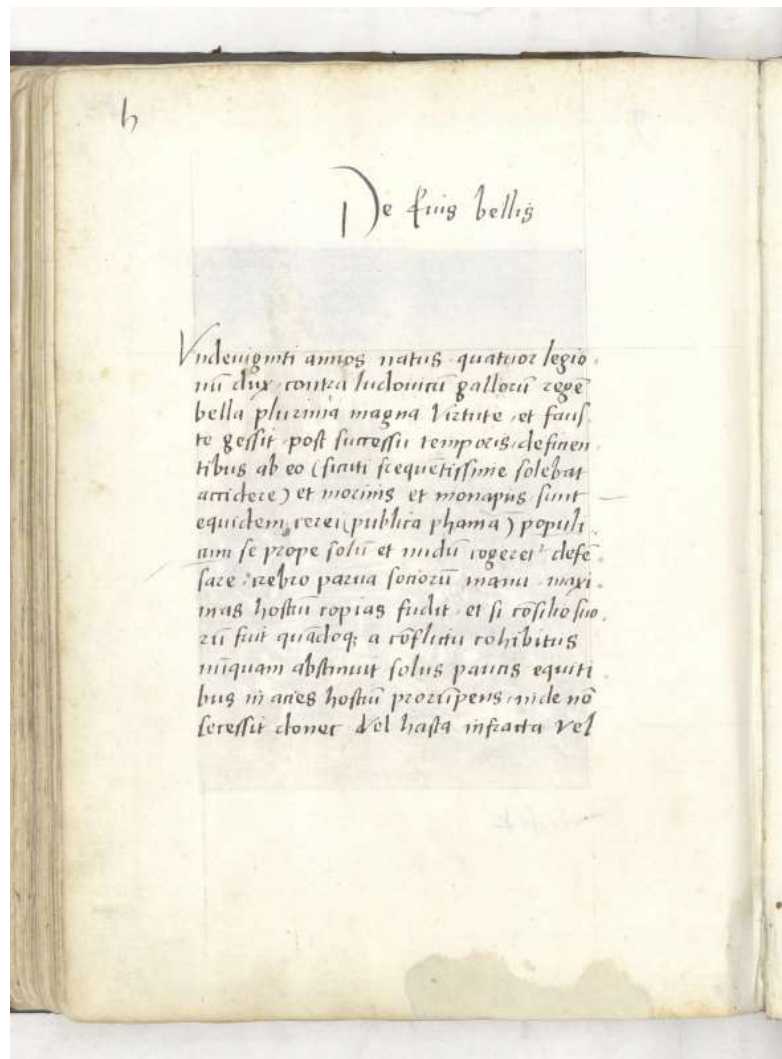 h
De suis bellis
Vndeuiginti annos natus quatuor legio
nū dux contra ludouicū gallorū regē
bella plurimia magna virtute et faus
te gessit post successu temporis deficien
tibus ab eo (sicuti frequētissime solebat
accidere) et morinis et monapiis sunt
equidem cerei (publica phama) populi
cum se prope solū et nudū cogeret defē
sare crebro parua sociorū manu maxi
mas hostiū copias fudit et si cōsilio suo
rū fuit quādoq; a cōflictu cohibitus
nūquam abstinuit solus paucis equiti
bus in acies hostiū prorūpens inde nō
secessit donec vel hasta infracta vel